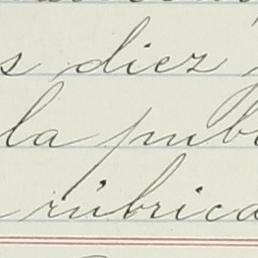 s diez y
la publ
rúbrica